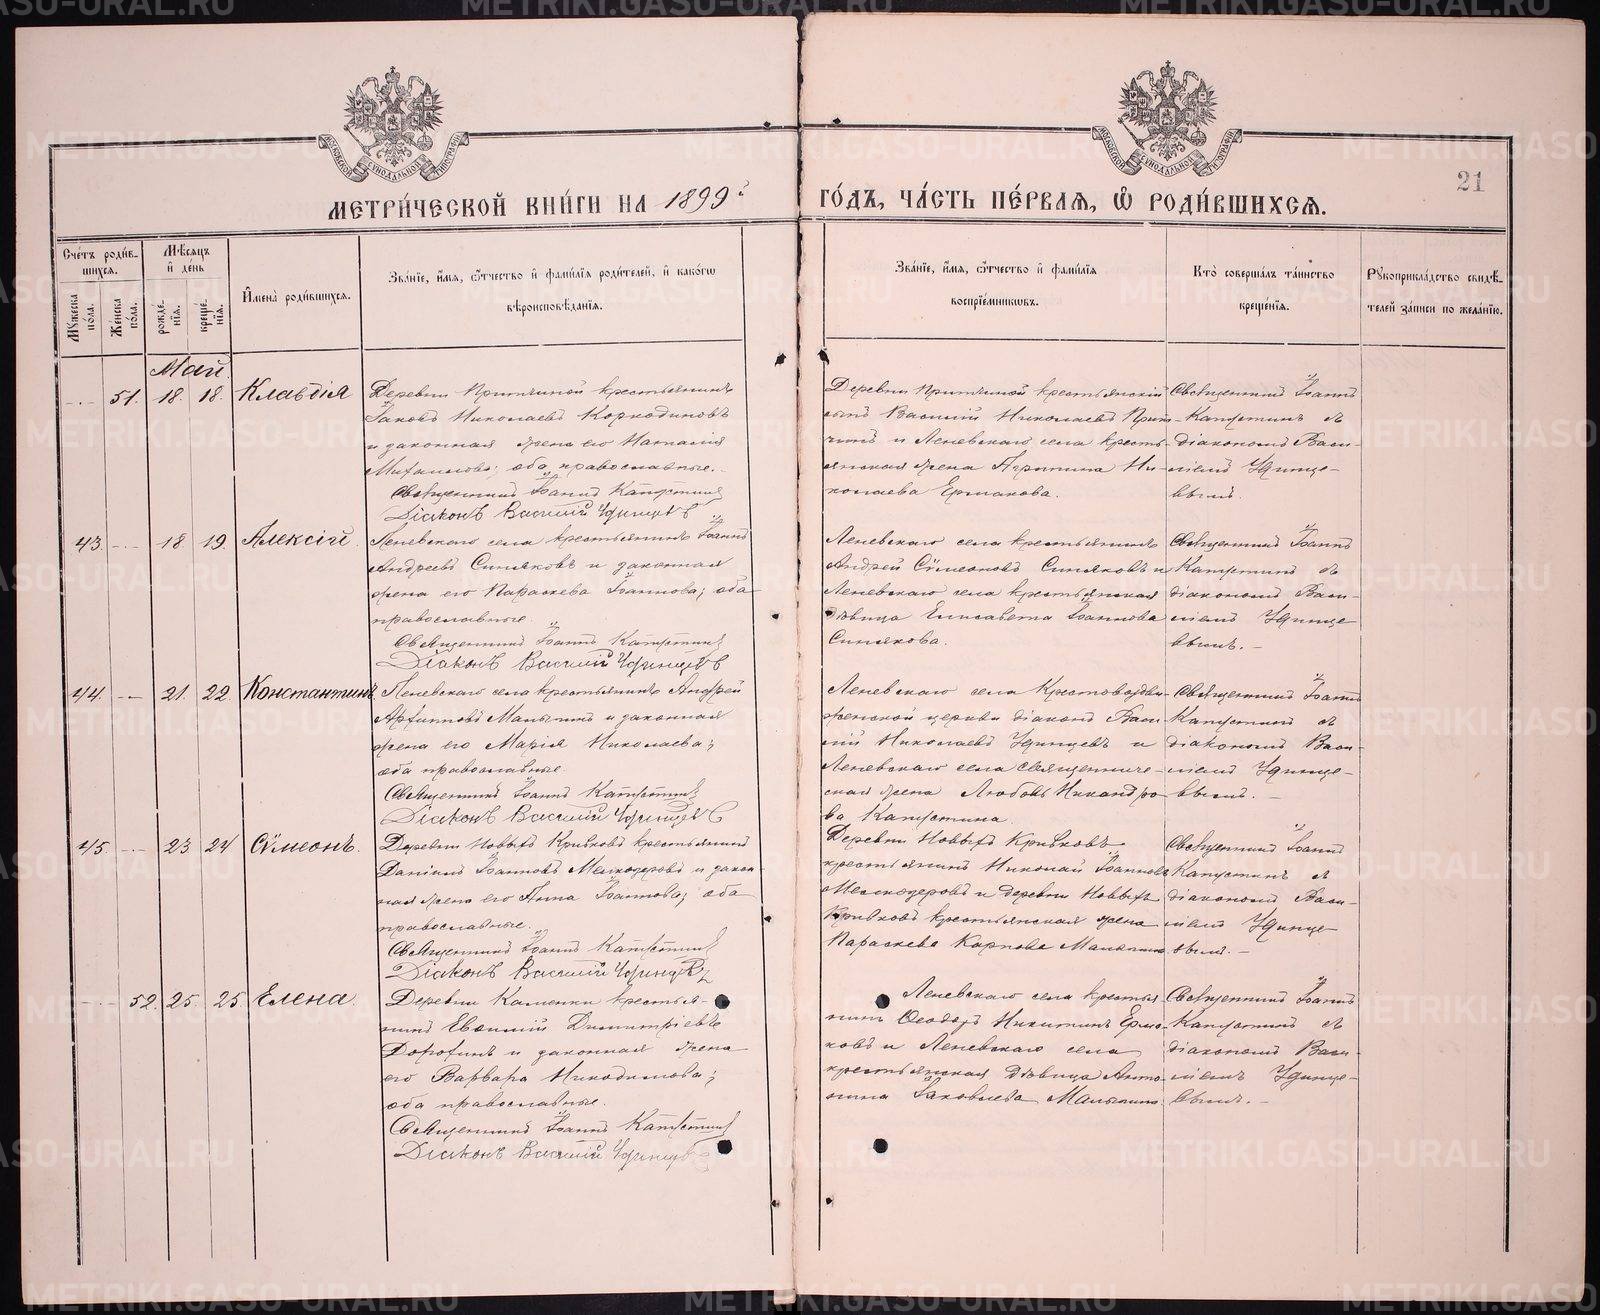 21
МЕТРИ́ЧЕСКОЙ КНИ́ГИ НА 1899 й
ГО́ДЪ, ЧА́СТЬ ПЕ́РВАѦ, Ѽ РОДИ́ВШИХСѦ.
Сче́тъ роди́в-
шихсѧ.
Мѣ́сѧцъ
и҆ де́нь
Мꙋ́жеска
по́ла.
Же́нска
по́ла.
рожде́-
нїѧ.
креще́-
нїѧ.
И҆мена̀ роди́вшихсѧ.
Зва́нїе, и҆́мѧ, ѻ҆́тчество и҆ фами́лїѧ роди́телей, и҆ како́гѡ
вѣроисповѣ́данїѧ.
Зва́нїе, и҆́мѧ, ѻ҆́тчество и҆ фами́лїѧ
воспрїе́мникѡвъ.
Кто̀ соверша́лъ та́инство
креще́нїѧ.
Рꙋкоприкла́дство свидѣ́-
телей за́писи по жела́нїю.
Май.
51. 18. 18. Клавдія
Деревни Притчиной крестьянинъ
Іаковъ Николаевъ Коркодиновъ
и законная жена его Наталія
Михаилова; оба православные.
Священникъ Іоаннъ Капустинъ
Діаконъ Василій Удинцевъ
Деревни Притчиной крестьянскій
сынъ Василій Николаевъ Прит-
чинъ и Леневскаго села кресть-
янская жена Агрипина Ни-
колаева Ермакова.
Священникъ Іоаннъ
Капустинъ съ
діакономъ Васи-
ліемъ Удинце-
вымъ.
43. 18. 19. Алексій
Леневскаго села крестьянинъ Іоаннъ
Андреевъ Синяковъ и законная
жена его Параскева Іоаннова; оба
православные.
Священникъ Іоаннъ Капустинъ
Діаконъ Василій Удинцевъ
Леневскаго села крестьянинъ
Андрей Сѵмеоновъ Синяковъ и
Леневскаго села крестьянская
дѣвица Елисавета Іоаннова
Синякова.
Священникъ Іоаннъ
Капустинъ съ
діакономъ Васи-
ліемъ Удинце-
вымъ.
44. 21. 22. Константинъ
Леневскаго села крестьянинъ Андрей
Архипповъ Малыгинъ и законная
жена его Марія Николаева;
оба православные.
Священникъ Іоаннъ Капустинъ
Діаконъ Василій Удинцевъ
Леневскаго села Крестовоздви-
женской церкви діаконъ Васи-
лій Николаевъ Удинцевъ и
Леневскаго села священниче-
ская жена Любовь Никандро-
ва Капустина.
Священникъ Іоаннъ
Капустинъ съ
діакономъ Васи-
ліемъ Удинце-
вымъ.
45. 23. 24 Сѵмеонъ.
Деревни Новыхъ Кривковъ крестьянинъ
Даніилъ Іоанновъ Мелкозеровъ и закон-
ная жена его Анна Іоаннова; оба
православные.
Священникъ Іоаннъ Капустинъ
Діаконъ Василій Удинцевъ
Деревни Новыхъ Кривковъ
крестьянинъ Николай Іоанновъ
Мелкозеровъ и деревни Новыхъ
Кривковъ крестьянская жена
Параскева Карпова Малыгина
Священникъ Іоаннъ
Капустинъ съ
діакономъ Васи-
ліемъ Удинце-
вымъ.
52. 25. 25. Елена.
Деревни Каменки крестья-
нинъ Евѳимій Димитріевъ
Дорохинъ и законная жена
его Варвара Никодимова;
оба православные.
Священникъ Іоаннъ Капустинъ
Діаконъ Василій Удинцевъ
Леневскаго села крестья-
нинъ Ѳеодоръ Никитинъ Ерма-
ковъ и Леневскаго села
крестьянская дѣвица Анто-
нина Іаковлева Малыгина
Священникъ Іоаннъ
Капустинъ съ
діакономъ Васи-
ліемъ Удинце-
вымъ.
METRIKI.GASO-URAL.RU